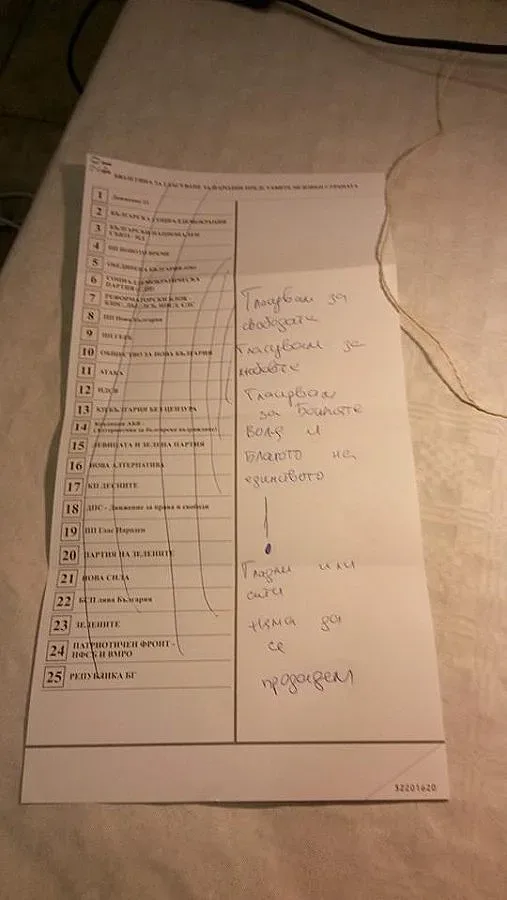 БЮЛЕТИНА ЗА ГЛАСУВАНЕ ЗА НАРОДНИ ПРЕДСТАВИТЕЛИ В СТРАНАТА
1 Движение 21
2 БЪЛГАРСКА СОЦИАЛДЕМОКРАЦИЯ
3 БЪЛГАРСКИ НАЦИОНАЛЕН
СЪЮЗ - НД
4 ПП НОВОТО ВРЕМЕ
5 ОБЕДИНЕНА БЪЛГАРИЯ
6 СОЦИАЛДЕМОКРАТИЧЕСКА
ПАРТИЯ
7 РЕФОРМАТОРСКИ БЛОК -
8 ПП Нова България
9 ПП ГЕРБ
10 ОБЩЕСТВО ЗА НОВА БЪЛГАРИЯ
11 АТАКА
12 НДСВ
13 КП БЪЛГАРИЯ БЕЗ ЦЕНЗУРА
14 Коалиция АБВ -
(Алтернатива за българско възраждане)
15 ЛЕВИЦАТА И ЗЕЛЕНА ПАРТИЯ
16 НОВА АЛТЕРНАТИВА
17 КП ДЕСНИТЕ
18 ДПС - Движение за права и свободи
19 ПП Глас Народен
20 ПАРТИЯ НА ЗЕЛЕНИТЕ
21 НОВА СИЛА
22 БСП лява България
23 ЗЕЛЕНИТЕ
24 ПАТРИОТИЧЕН ФРОНТ -
НФСБ И ВМРО
25 РЕПУБЛИКА БГ
Гласувам за
свободата
Гласувам за
любовта
Гласувам
за Божията
Воля и
Благото на
единството
!
Гладни или
сити
няма да
се
продадем
32201620